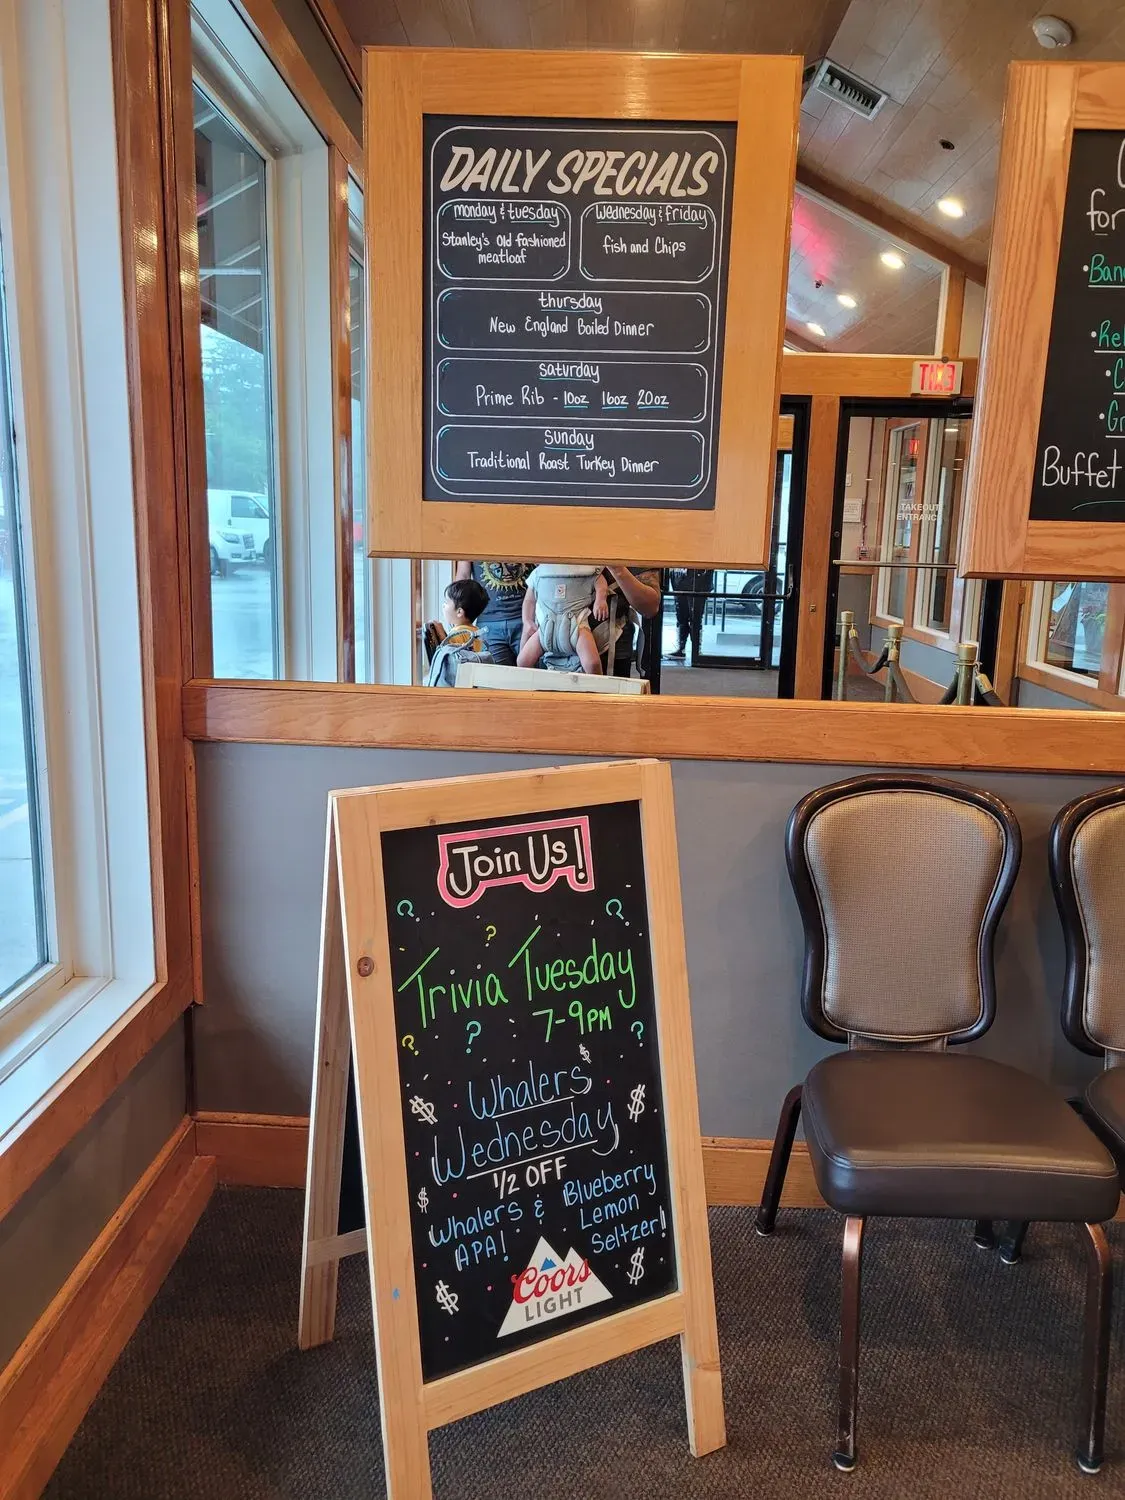 DAILY SPECIALS
monday & tuesday
Stanley's Old fashioned
meatloaf
Wednesday & friday
fish and Chips
thursday
New England Boiled Dinner
saturday
Prime Rib - 10oz 16oz 20oz
sunday
Traditional Roast Turkey Dinner
for
•Ban
•Rel
•C
•Gr
Buffet
EXIT
TAKEOUT
ENTRANCE
Join Us!
Trivia Tuesday
7-9PM
Whalers
Wednesday
1/2 OFF
Whalers &
APA!
Blueberry
Lemon
Seltzer!
Coors
LIGHT